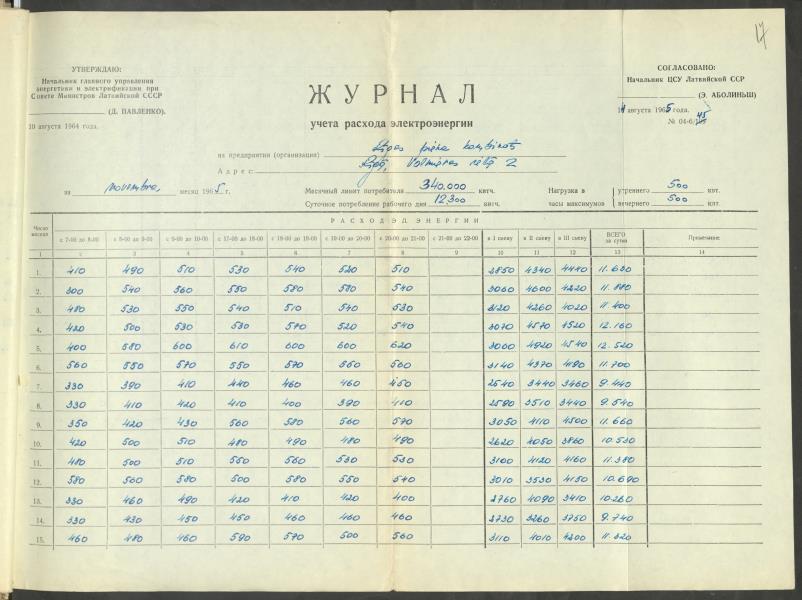 17
УТВЕРЖДАЮ:
Начальник главного управления
энергетики и электрификации при
Совете Министров Латвийской ССР
(Д. ПАВЛЕНКО).
10 августа 1964 года.
СОГЛАСОВАНО:
Начальник ЦСУ Латвийской ССР
(Э. АБОЛИНЬШ)
августа 1965 года.
№ 04-6/
ЖУРНАЛ
учета расхода электроэнергии
на предприятии (организации) Rīgas piena kombināts
Адрес: Rīgā, Valmieras ielā 2
за novembra, месяц 1965 г.
Месячный лимит потребителя 340.000 квтч.
Суточное потребление рабочего дня 12.300 квтч.
Нагрузка в часы максимумов
утреннего 500 квт.
вечернего 500 квт.
Число месяца
РАСХОД ЭЛ. ЭНЕРГИИ
с 7-00 до 8-00 с 8-00 до 9-00 с 9-00 до 10-00 с 17-00 до 18-00 с 18-00 до 19-00 с 19-00 до 20-00 с 20-00 до 21-00 с 21-00 до 22-00 в I смену в II смену в III смену ВСЕГО за сутки Примечание:
1 2 3 4 5 6 7 8 9 10 11 12 13 14
1. 410 490 510 530 540 520 510 2850 4340 4440 11.630
2. 300 540 560 550 580 580 540 3060 4600 4220 11.880
3. 480 530 550 540 510 540 530 3120 4260 4020 11.400
4. 420 500 530 530 570 520 540 3070 4570 4520 12.160
5. 400 580 600 610 600 600 620 3060 4920 4540 12.520
6. 560 550 570 550 570 560 560 3140 4370 4190 11.700
7. 330 390 410 440 460 460 450 2540 3440 3460 9.440
8. 330 410 420 410 400 390 410 2590 3510 3440 9.540
9. 350 420 430 560 580 560 570 3050 4110 4500 11.660
10. 420 500 510 480 490 480 490 2620 4050 3860 10.530
11. 480 500 510 550 560 530 530 3100 4120 4160 11.380
12. 580 560 580 500 580 550 540 3010 3530 4150 10.690
13. 330 460 490 420 410 420 400 2760 4090 3410 10.260
14. 330 430 450 450 460 460 460 2730 3260 3750 9.740
15. 460 480 460 590 570 500 560 3110 4010 4200 11.320